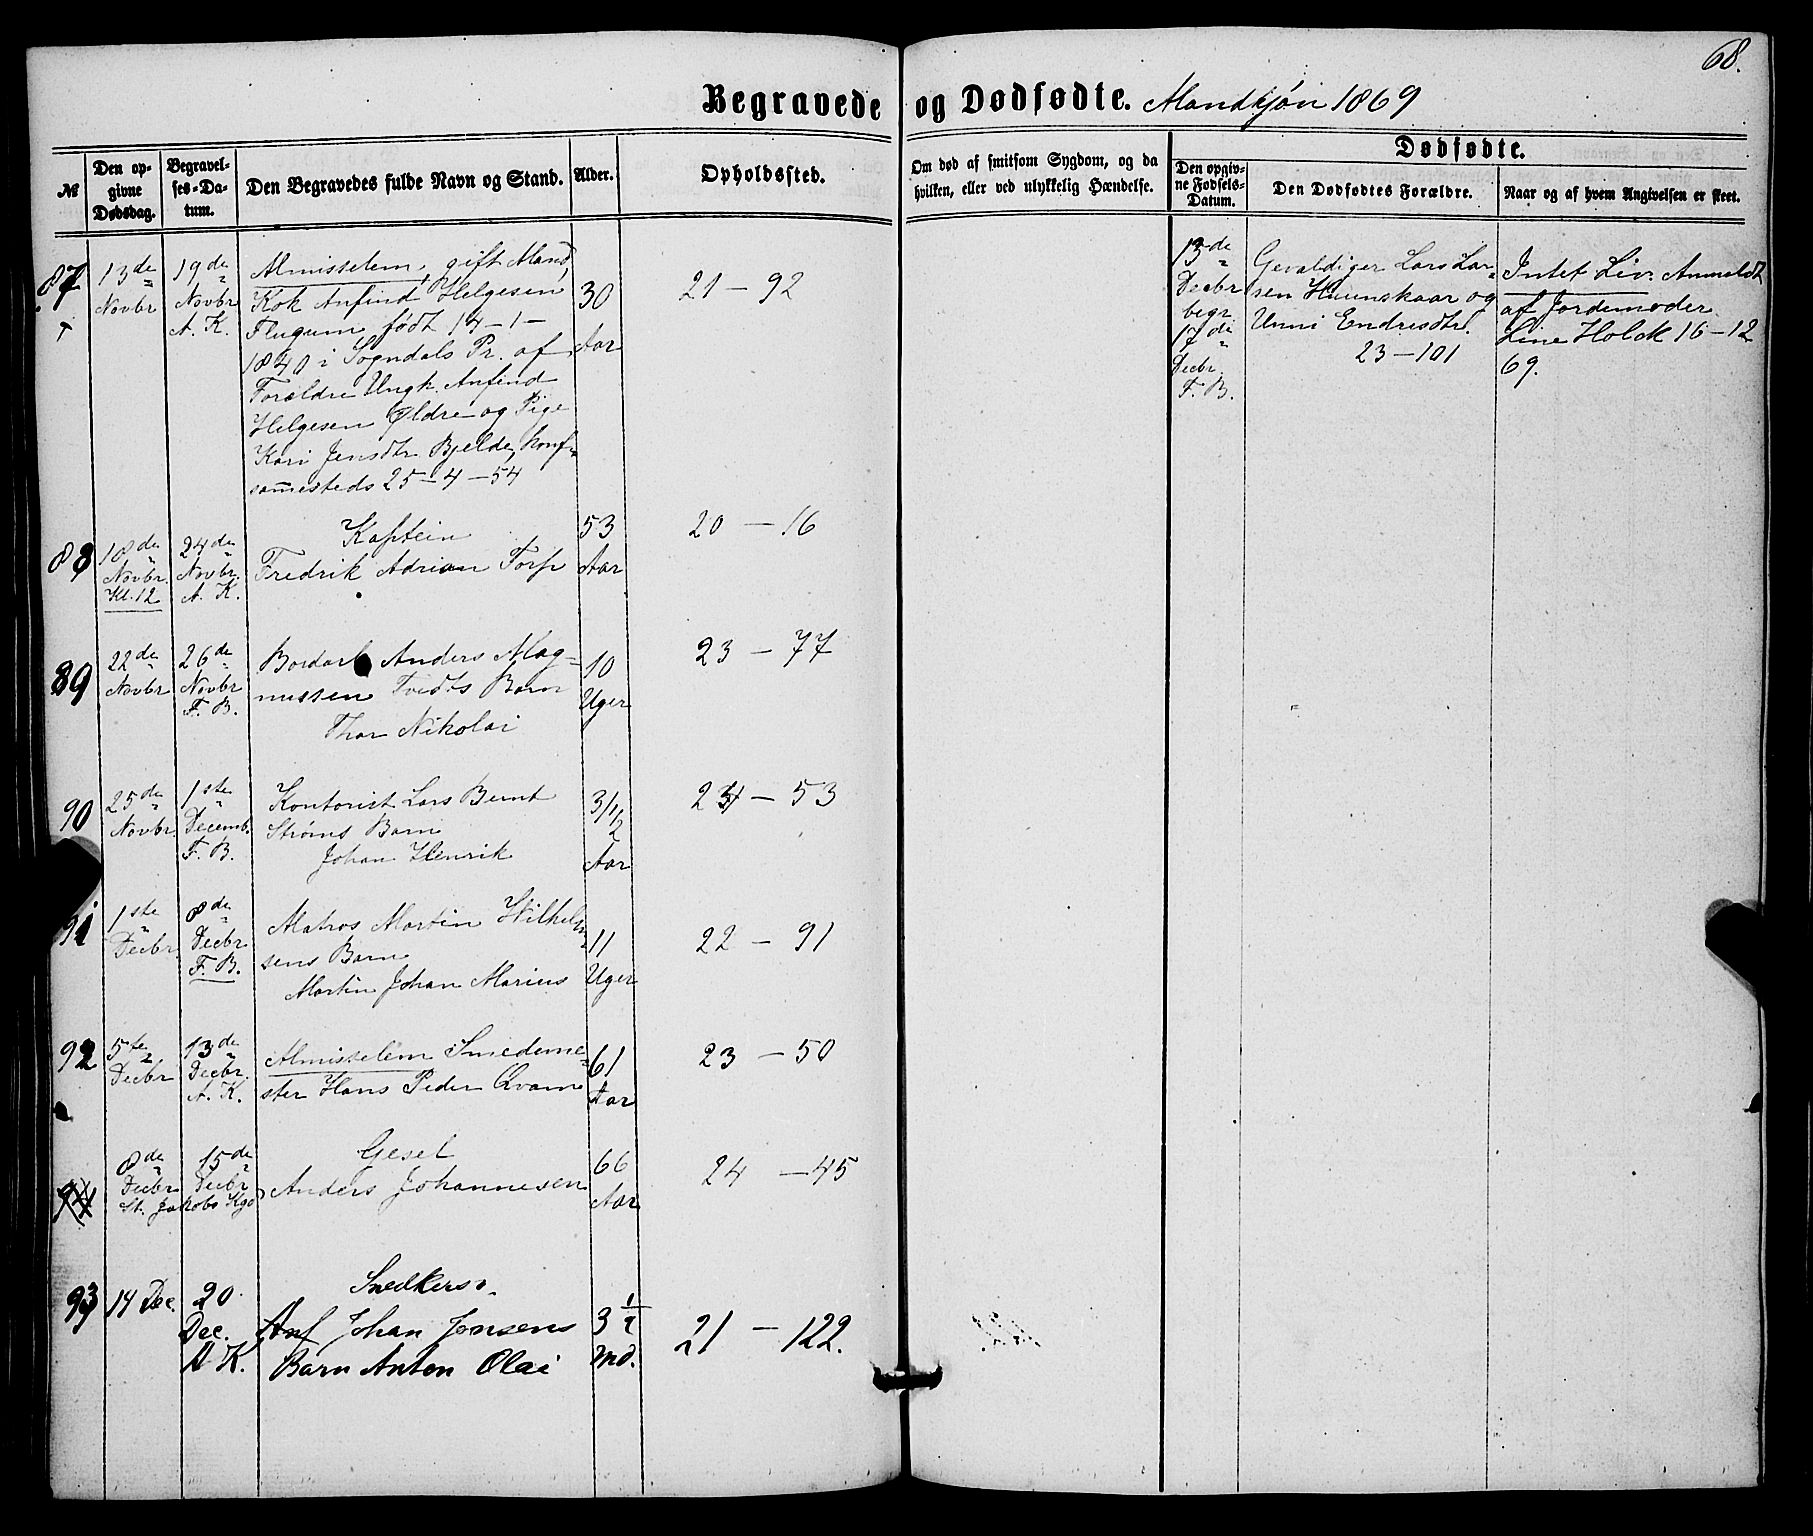 68.
Begravede og Dødfødte. Mandkjøn 1869
№
Den opgivne Dødsdag.
Begravelses-Datum.
Den Begravedes fulde Navn og Stand.
Alder.
Opholdssted.
Om død af smitsom Sygdom, og da
hvilken, eller ved ulykkelig Hændelse.
Dødfødte.
Den opgivne Fødsels-Datum.
Den Dødfødtes Forældre.
Naar og af hvem Angivelsen er skeet.
87
13de
Novbr
19de
Novbr
A. K.
Almisselem, gift Mand,
Kok Anfind Helgesen
Flugum født 14-1-
1840 i Sogndals Pr. af
Forældre Ungk. Anfind
Helgesen Øldre og Pige
Kari Jensdtr Bjelde, konf.
sammesteds 25-4-54
30
Aar
21 - 92
13de
Decbr
begr.
17de
Decbr.
F. B.
Gevaldiger Lars Lar-
sen Huunskaar og
Unni Endresdtr.
23-101
Intet Liv. Anmeldt
af Jordemoder
Line Holck 16-12
69.
88
18de
Novbr.
Kl. 12
24de
Novbr.
A. K.
Kaptein
Fredrik Adrian Torp
53
Aar
20 - 16
89
22de
Novbr
26de
Novbr
F. B.
Bordarb Anders Mag=
nussen Tvedts Barn
Thor Nikolai
10
Uger
23 - 77
90
25de
Novbr.
1ste
Decemb.
F. B.
Kontorist Lars Bernt
Strøms Barn
Johan Henrik
3/1/2
Aar
24 - 53
91
1ste
Decbr.
8de
Decbr.
F. B.
Matros Martin Wilhelm
sens Barn
Martin Johan Marius
11
Uger
22 - 91
92
5te
Decbr
13de
Decbr.
A. K.
Almisselem Smedeme=
ster Hans Peder Qvam
61
Aar
23 - 50
8de
Decbr
15de
Decbr
St. Jakobs Kgd
Gesel
Anders Johannesen
66
Aar
24 - 45
93
14 Dec.
20
Dec.
A K.
Snedkersv.
Anf Johan Jensens
Barn Anton Olai
3 1/2
Md.
21 - 122.